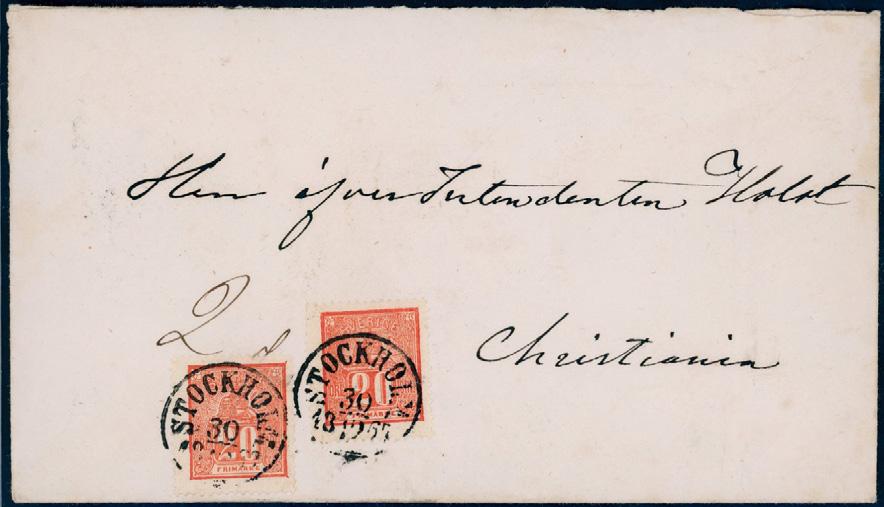 Herr öfver Intendenten Holst
Christiania
2
STOCKHOLM
30
SVERIGE
20
FRIMÄRKE
STOCKHOLM
30
12
20
FRIMÄRKE